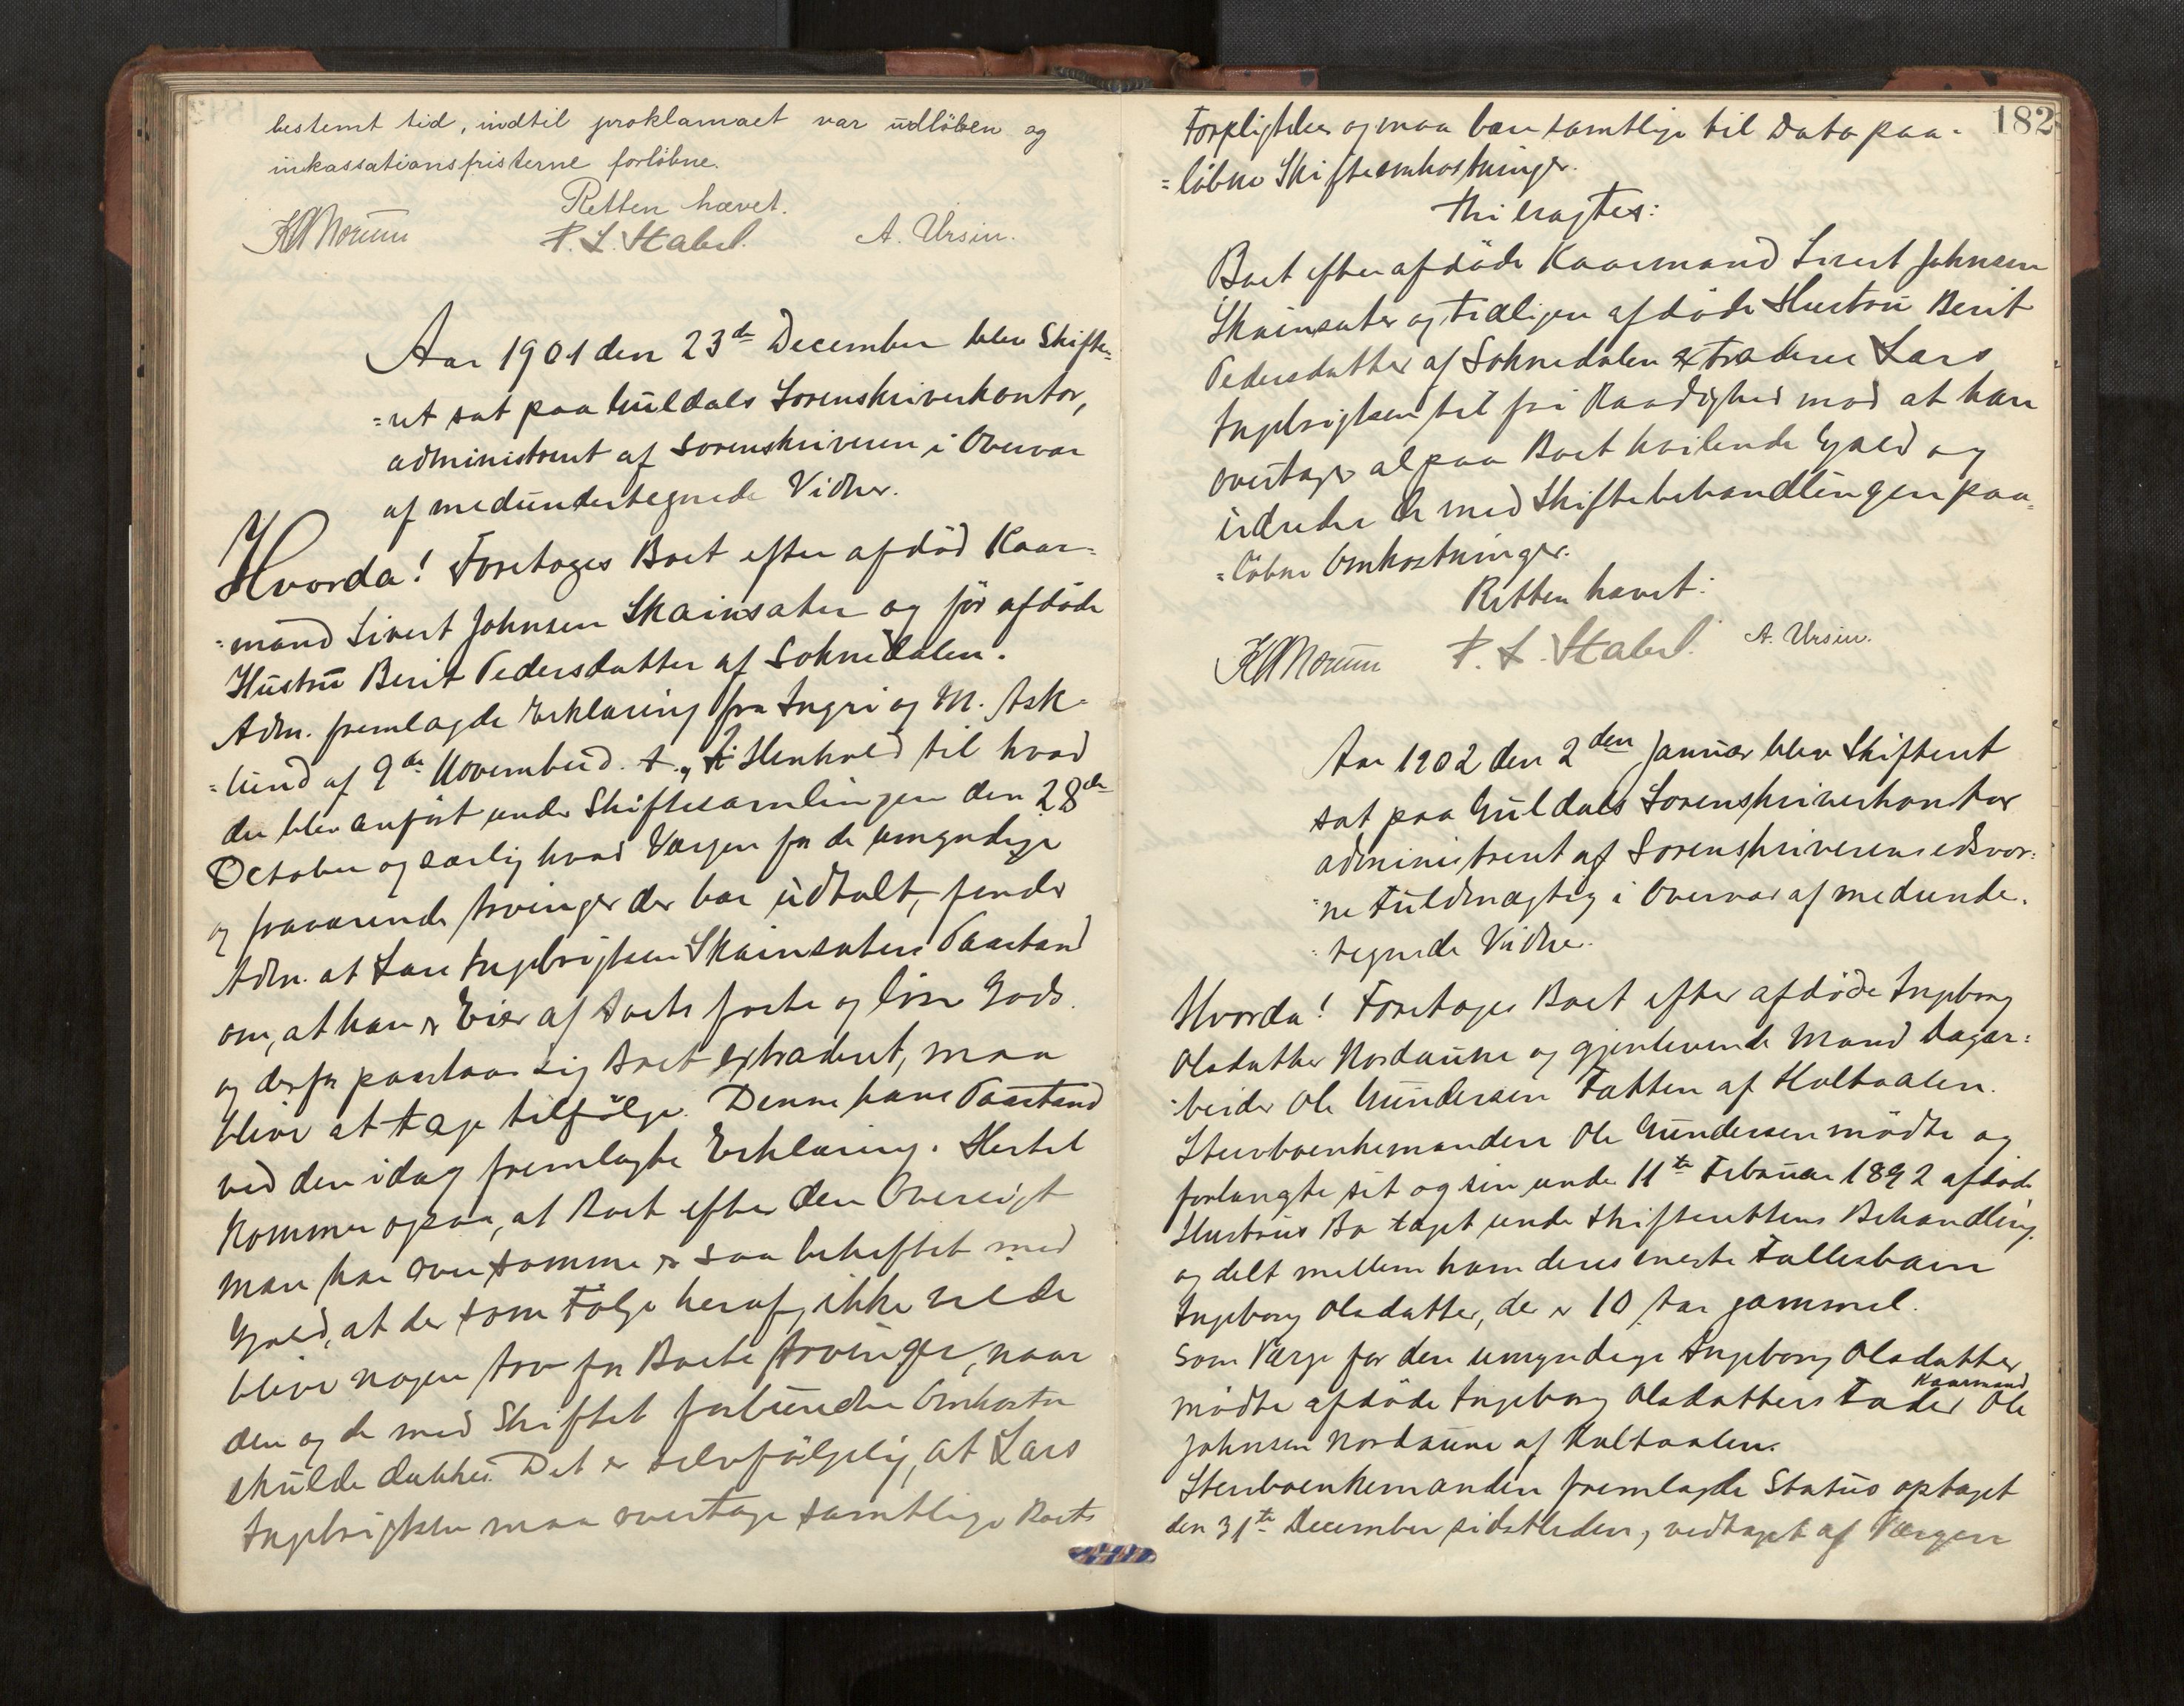 bestemt tid, indtil proklamaet var udløben og
inkassationsfristerne forløbne.
Retten hævet.
P. L. Stabel. A. Ursin.
Aar 1901 den 23de December blev Skifte-
=ret sat paa Guldals Sorenskriverkontor,
administreret af Sorenskriveren i Overvær
af medundertegnede Vidner.
Hvorda! Foretoges Boet efter afdød Kaar=
=mand Sivert Johnsen Skainsæter og før afdøde
Hustru Berit Pedersdatter af Soknedalen.
Adm. fremlagde Erklæring fra Ingri og M. Ask-
=lund af 9de November d. A., I Henhold til hvad
der blev anført under Skiftesamlingen den 28de
October og særlig hvad Værgen for de umyndige
og fraværende Arvinger der har udtalt, finder
Adm. at Lars Ingebrigtsen Skainsæters Paastand
om, at han er Eier af Boets faste og løse Gods
og derfor paastaar sig Boet extraderet, maa
blive at tage tilfølge. Denne hans Paastand
ved den idag fremlagte Erklæring. Hertil
kommer ogsaa, at Boet efter den Oversigt
man har over samme er saa beheftet med
Gjæld, at der som Følge heraf, ikke vilde
blive nogen Arv for Boets Arvinger, naar
den og de med Skiftet forbundne Omkostn
skulde dækkes. Det er selvfølgelig, at Lars
Ingebrigtsen maa overtage samtlige Boets
182
Forpligtelser og maa bære samtlige til Dato paa-
=løbne Skifteomkostninger.
Thi eragtes:
Boet efter afdøde Kaarmand Sivert Johnsen
Skainsæter og tidligere afdøde Hustru Berit
Pedersdatter af Soknedalen extraderes Lars
Ingebrigtsen til fri Raadighed mod at han
overtager al paa Boet hvilende Gjæld og
udreder de med Skiftebehandlingen paa=
=løbne Omkostninger.
Retten hævet:
P. L. Stabel. A. Ursin.
Aar 1902 den 2den Januar blev Skifteret
sat paa Guldals Sorenskriverkontor
administreret af Sorenskriverens edsvor=
=ne Fuldmægtig i Overvær af medunder-
=tegnede Vidner.
Hvorda! Foretoges Boet efter afdøde Ingeborg
Olsdatter Nordaune og gjenlevende Mand Dagar=
=beider Ole Gundersen Tatten af Holtaalen.
Stervboenkemanden Ole Gundersen mødte og
forlangte sit og sin under 11te Februar 1892 afdøde
Hustrus Bo taget under Skifterettens Behandling
og delt mellem ham deres eneste Fællesbarn
Ingeborg Olsdatter, der er 10 Aar gammel.
Som Værge for den umyndige Ingeborg Olsdatter
mødte afdøde Ingeborg Olsdatters Fader Kaarmand Ole
Johnsen Nordaune af Holtaalen.
Stervboenkemanden fremlagde Status optaget
den 31te December sidstleden, vedtaget af Værgen